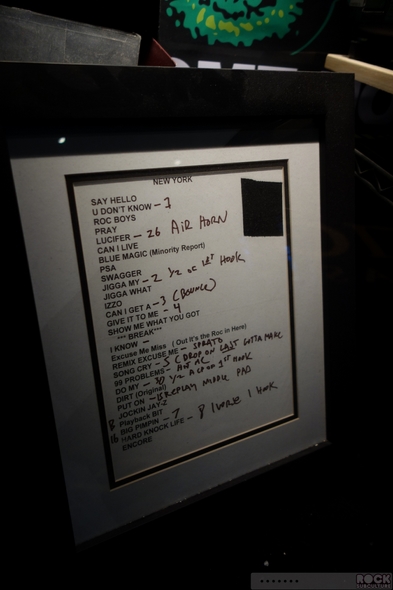 NEW YORK
SAY HELLO
U DON'T KNOW – 7
ROC BOYS
PRAY
LUCIFER – 26 AIR HORN
CAN I LIVE
BLUE MAGIC (Minority Report)
PSA
SWAGGER
JIGGA MY – 2 1/2 1ST HOOK
JIGGA WHAT
IZZO
CAN I GET A – 3 (BOUNCE)
GIVE IT TO ME – 4
SHOW ME WHAT YOU GOT
*** BREAK***
I KNOW –
Excuse Me Miss (Out it's the Roc in Here)
REMIX EXCUSE ME –
SONG CRY – 5 (DROP ON LAST GOTTA
99 PROBLEMS –
DO MY – 1ST HOOK
DIRT (Original)
PUT ON – REPLAY MIDDLE PAD
JOCKIN JAY-Z
8 Playback BIT
16 BIG PIMPIN – 7
HARD KNOCK LIFE – 8 1 HOOK
ENCORE
ROCK
SUBCULTURE